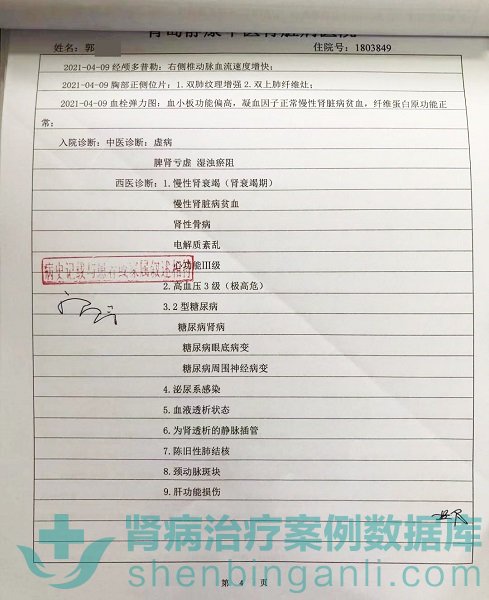 青岛静康中医肾脏病医院
姓名：郭 住院号：1803849
2021-04-09 经颅多普勒：右侧椎动脉血流速度增快；
2021-04-09 胸部正侧位片：1. 双肺纹理增强 2. 双上肺纤维灶；
2021-04-09 血栓弹力图：血小板功能偏高，凝血因子正常慢性肾脏病贫血，纤维蛋白原功能正
常；
入院诊断：中医诊断：虚病
脾肾亏虚 湿浊瘀阻
西医诊断：1.慢性肾衰竭（肾衰竭期）
慢性肾脏病贫血
肾性骨病
电解质紊乱
心功能Ⅲ级
2.高血压3级（极高危）
3.2型糖尿病
糖尿病肾病
糖尿病眼底病变
糖尿病周围神经病变
4.泌尿系感染
5.血液透析状态
6.为肾透析的静脉插管
7.陈旧性肺结核
8.颈动脉斑块
9.肝功能损伤
肾病治疗案例数据库
shenbinganli.com
第 4 页